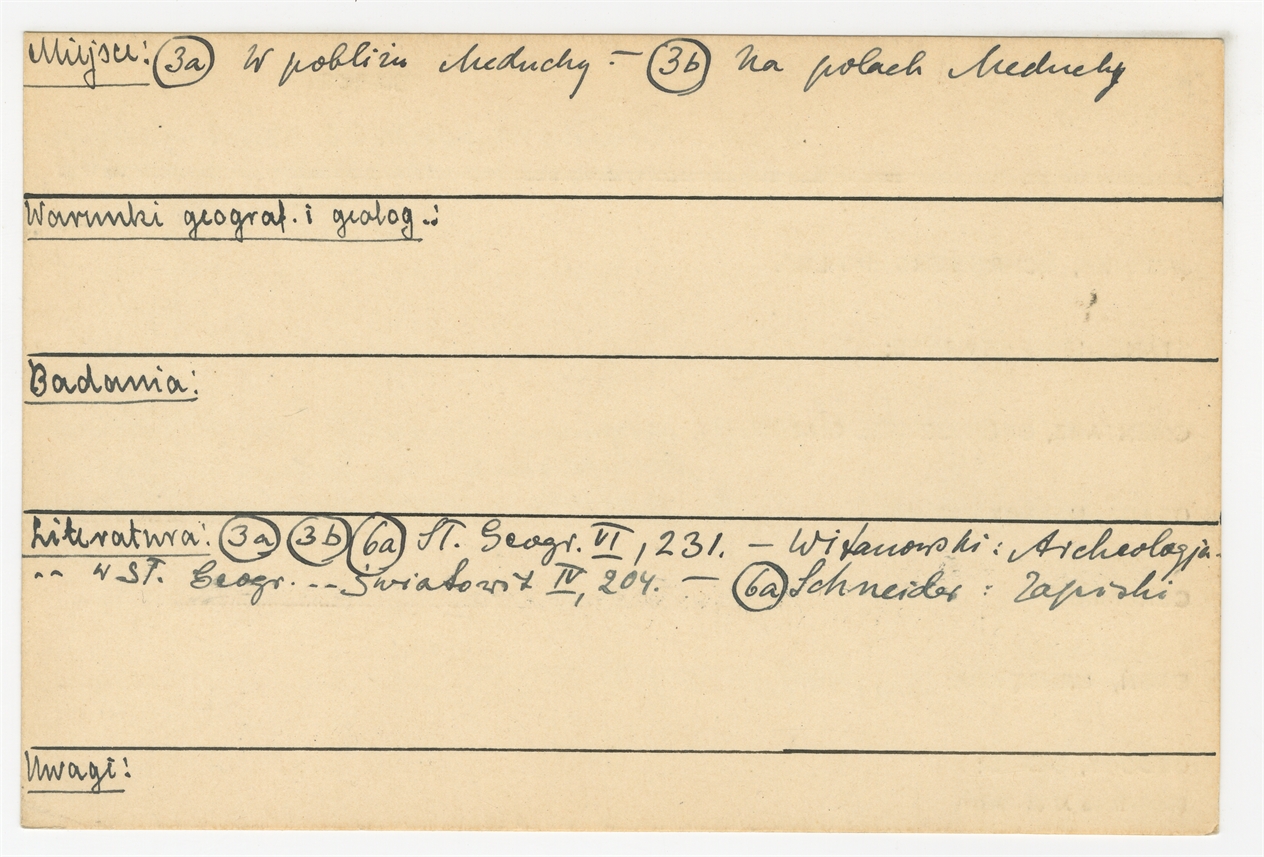 Miejsce: (3a) W pobliżu Meduchy. – (3b) Na polach Meduchy
Warunki geograf. i geolog.:
Badania:
Literatura: (3a) (3b) (6a) Sł. Geogr. VI, 231. – Witanowski: Archeologja
-- w Sł. Geogr. -- Światowit IV, 204. – (6a) Schneider: Zapiski
Uwagi: